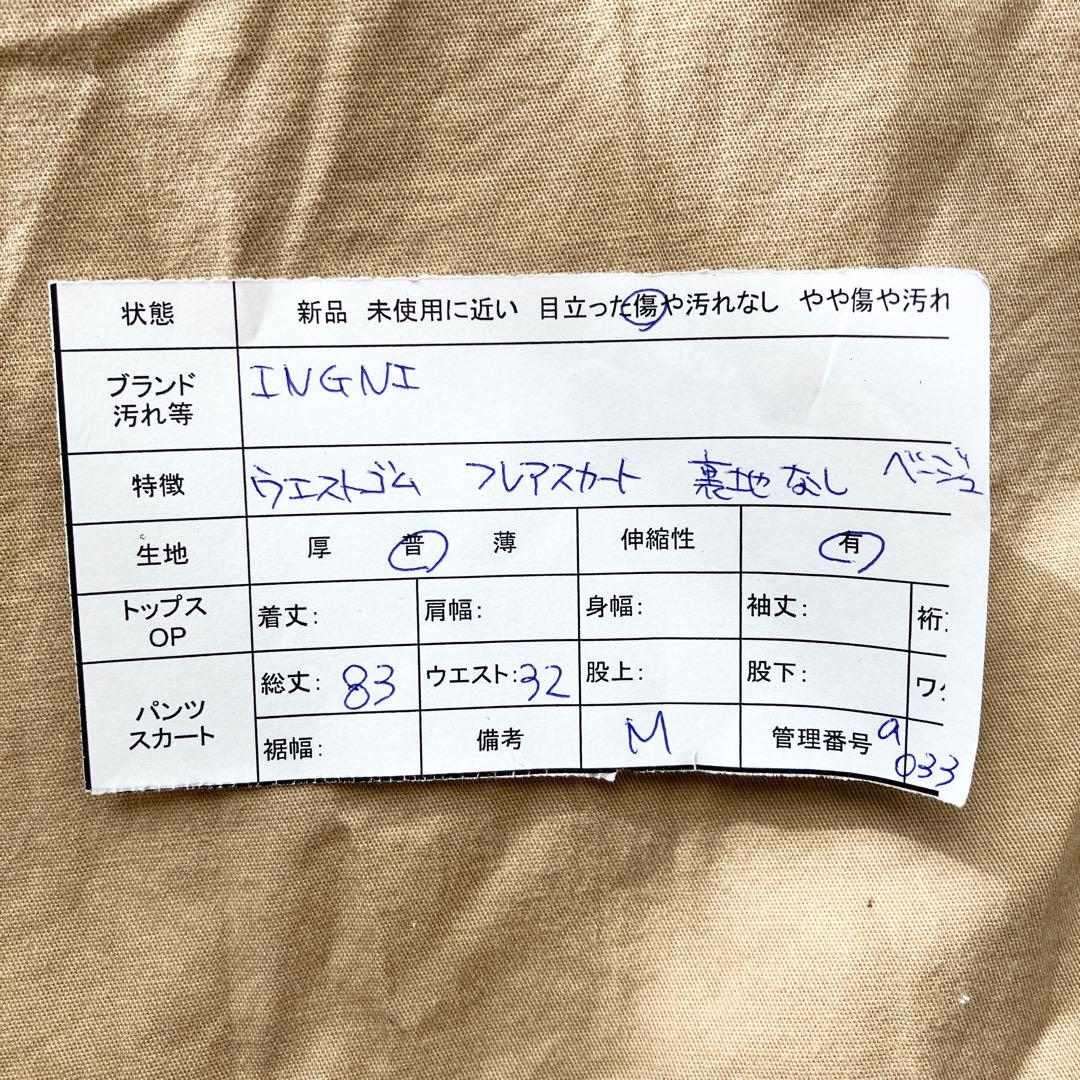 状態 新品 未使用に近い 目立った傷や汚れなし やや傷や汚れ
ブランド 汚れ等 INGNI
特徴 ウエストゴム フレアスカート 裏地なし ベージュ
生地 厚 普 薄 伸縮性 有
トップス OP 着丈: 肩幅: 身幅: 袖丈: 裄
パンツ スカート 総丈: 83 ウエスト: 32 股上: 股下: ワ
裾幅: 備考 M 管理番号 a 033